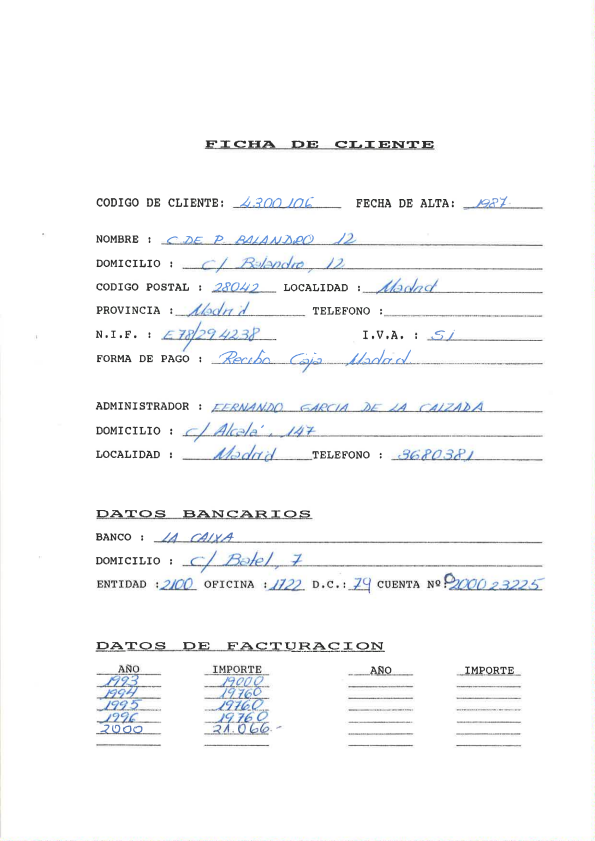 FICHA DE CLIENTE
CODIGO DE CLIENTE: 4300106 FECHA DE ALTA: 1987
NOMBRE : C DE P. BALANDRO 12
DOMICILIO : c/ Balandro, 12
CODIGO POSTAL : 28042 LOCALIDAD : Madrid
PROVINCIA : Madrid TELEFONO :
N.I.F. : E78/294238 I.V.A. : SI
FORMA DE PAGO : Recibo Caja Madrid
ADMINISTRADOR : FERNANDO GARCIA DE LA CALZADA
DOMICILIO : c/ Alcalá, 147
LOCALIDAD : Madrid TELEFONO : 3680381
DATOS BANCARIOS
BANCO : LA CAIXA
DOMICILIO : c/ Batel, 7
ENTIDAD : 2100 OFICINA : 1722 D.C.: 79 CUENTA Nº: 0200023225
DATOS DE FACTURACION
AÑO IMPORTE AÑO IMPORTE
1993 19000
1994 19760
1995 19760
1996 19760
2000 21.066.-